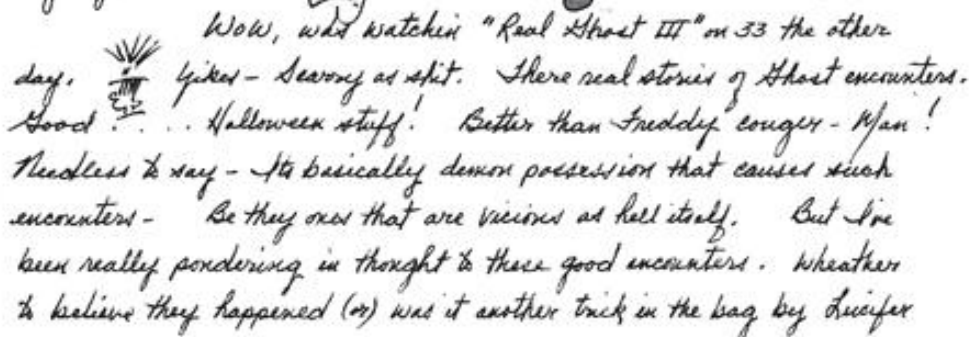 Wow, was watchin "Real Ghost III" on 33 the other
day. Yikes - Scarory as shit. There real stories of Ghost encounters.
Good . . . . Halloween stuff! Better than Freddy couger - Man!
Needless to say - Its basically demon possession that causes such
encounters - Be they ones that are vicious as hell itself. But I've
been really pondering in thought to these good encounters. Wheather
to believe they happened (or) was it another trick in the bag by Lucifer